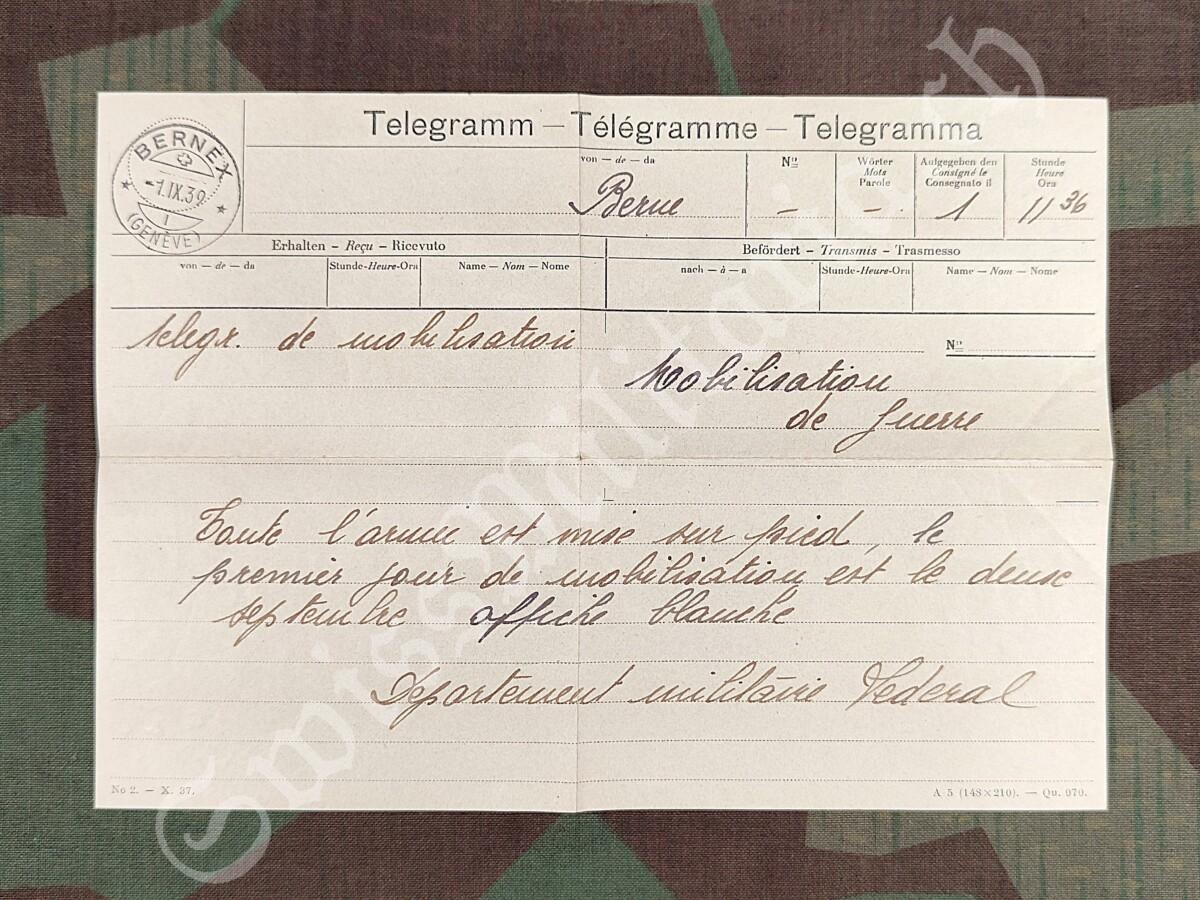 Telegramm – Télégramme – Telegramma
BERNEX
-1.IX.39
1
(GENÈVE)
von – de – da
Berne
No
–
Wörter
Mots
Parole
–
Aufgegeben den
Consigné le
Consegnato il
1
Stunde
Heure
Ora
11 36
Erhalten – Reçu – Ricevuto
Befördert – Transmis – Trasmesso
von – de – da
Stunde-Heure-Ora
Name – Nom – Nome
nach – à – a
Stunde-Heure-Ora
Name – Nom – Nome
telegr. de mobilisation
No
Mobilisation
de guerre
Toute l'armée est mise sur pied, le
premier jour de mobilisation est le deuse
septembre affiche blanche
Departement militaire Féderal
No 2. – X. 37.
A 5 (148×210). – Qu. 070.
SwissMilitaria.ch